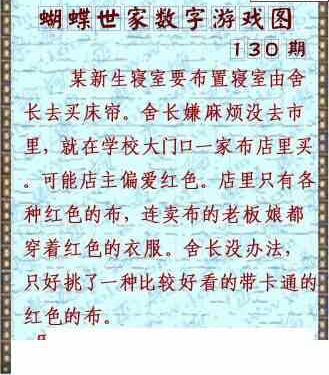 蝴蝶世家数字游戏图
130期
某新生寝室要布置寝室由舍
长去买床帘。舍长嫌麻烦没去市
里，就在学校大门口一家布店里买
。可能店主偏爱红色。店里只有各
种红色的布，连卖布的老板娘都
穿着红色的衣服。舍长没办法，
只好挑了一种比较好看的带卡通的
红色的布。